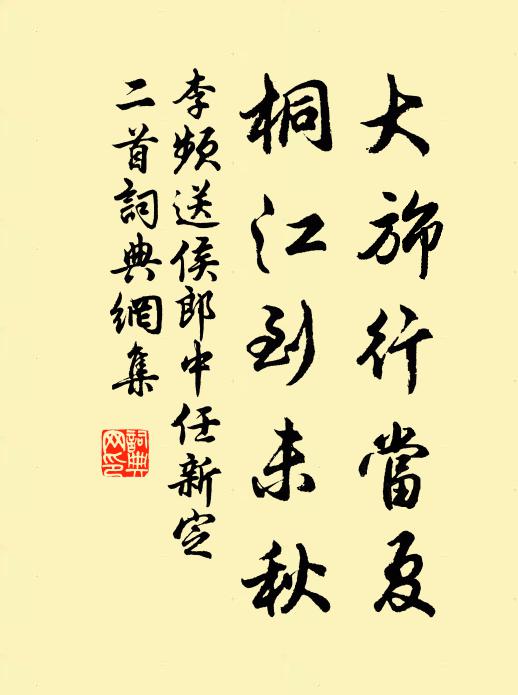 大斾行當夏
桐江到未秋
李頻送侯郎中任新定
二首詞典網集
詞典
网印